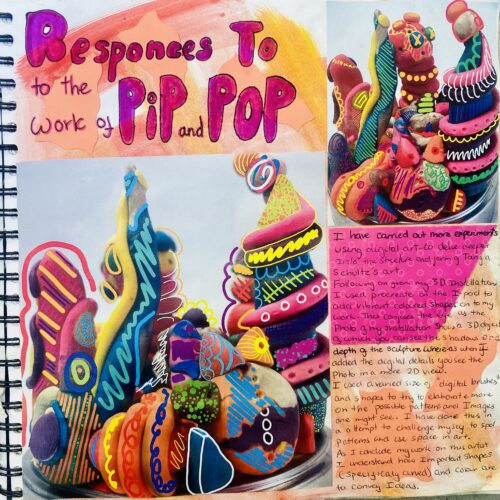 Responces To
to the
work of PiP and POP
I have carried out more experiments
using digital art to delve deeper
into the structure and form of Tanya
Schultz's art.
Following on from my 3D Installation
I used procreate on the I-pad to
add vibrant coloured Shapes on to my
work. This confuses the eye, as the
Photo of my installation shows a 3D object
by which you can see the shadows and
depth of the sculpture whereas when I
added the digital details you see the
Photo in a more 2D view.
I used a varied size of digital brushes
and shapes to the elaborate more
on the possible patterns and Images
one might see. I have done this in
a tempt to challenge myself to spot
Patterns and use space in art.
As I conclude my work on this artist
I understand how Important Shapes
(specifically curved) and colour are
to convey Ideas.